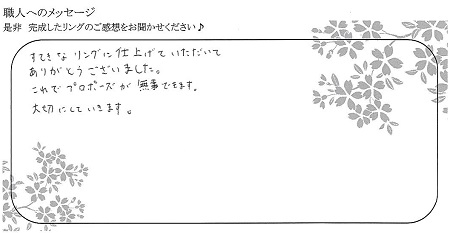 職人へのメッセージ
是非 完成したリングのご感想をお聞かせください♪
すてきなリングに仕上げていただいて
ありがとうございました。
これでプロポーズが無事できます。
大切にしていきます。